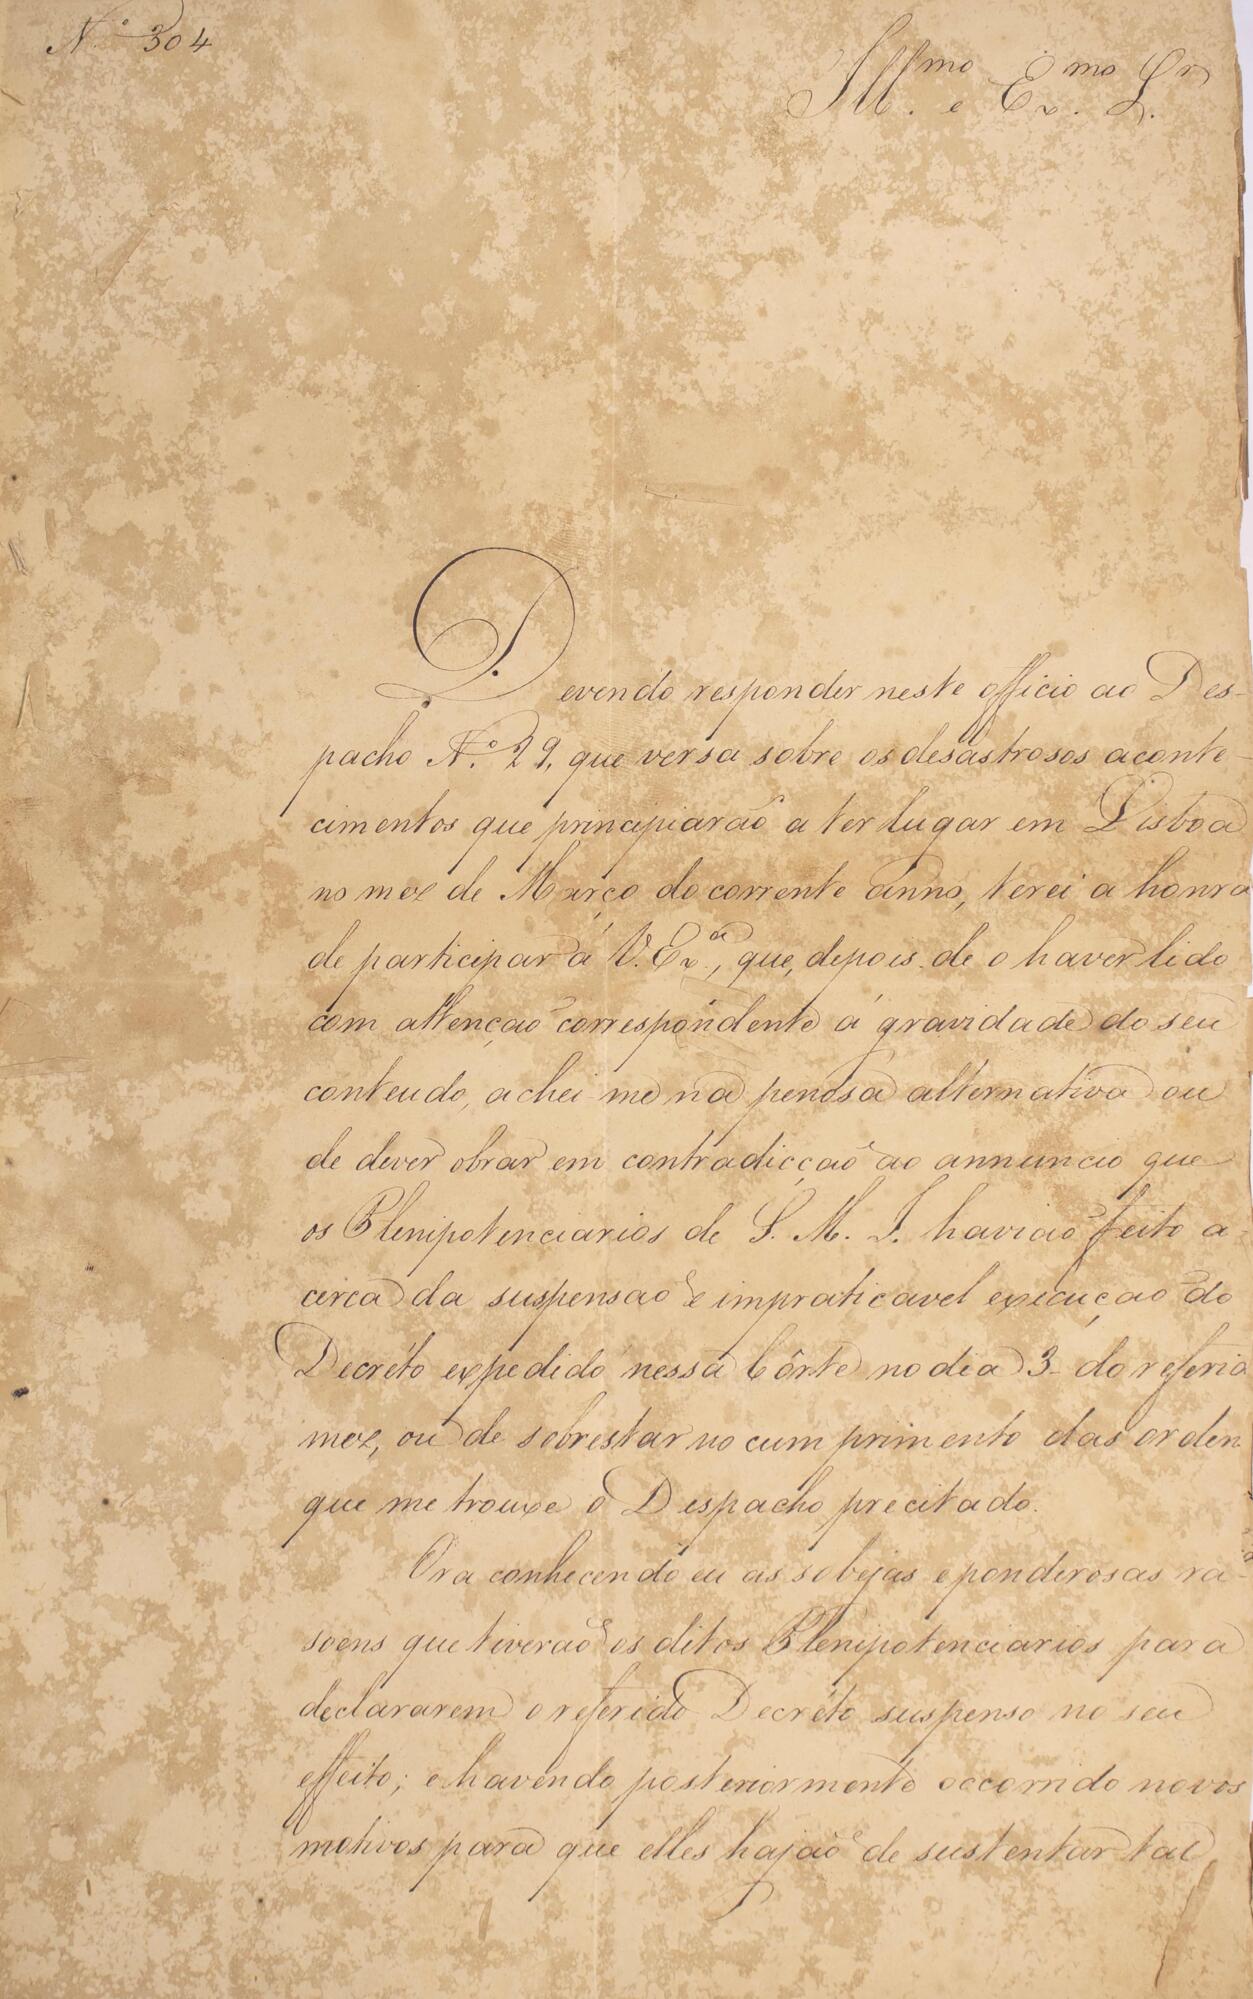 N.º 304
Ill.mo e Ex.mo S.r
Devendo responder neste officio ao Des-
pacho N.º 29, que versa sobre os desastrosos aconte-
cimentos que principiarão a ter lugar em Lisboa
no mez de Março do corrente anno, terei a honra
de participar á V. Ex.a, que, depois de o haver lido
com attenção correspondente á gravidade do seu
conteudo, achei-me na penosa alternativa ou
de dever obrar em contradicção ao annuncio que
os Plenipotenciarios de S. M. I. havião feito a-
cerca da suspensão e impraticavel execução do
Decréto expedido nessa Côrte no dia 3 do referido
mez, ou de sobrestar no cumprimento das orden
que me trouxe o Despacho precitado.
Ora conhecendo eu as sobejas e ponderosas ra-
soens que tiverão os ditos Plenipotenciarios para
declararem o referido Decréto suspenso no seu
effeito; e havendo posteriormente occorrido novos
motivos para que elles hajão de sustentar tal